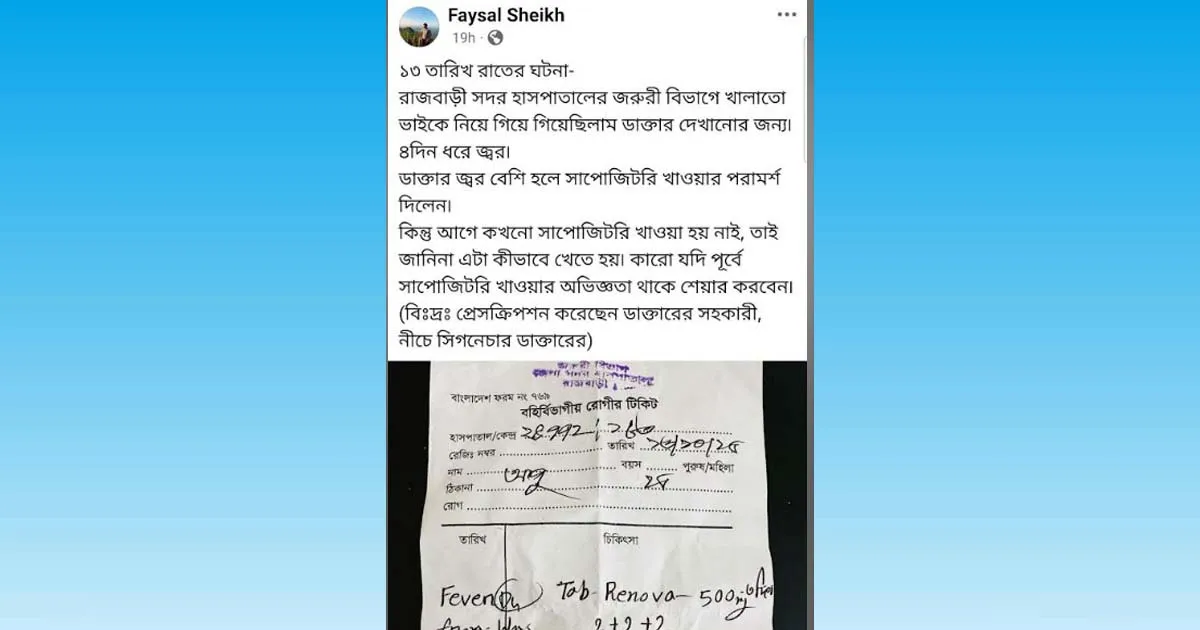 Faysal Sheikh
19h
১৩ তারিখ রাতের ঘটনা-
রাজবাড়ী সদর হাসপাতালের জরুরী বিভাগে খালাতো
ভাইকে নিয়ে গিয়ে গিয়েছিলাম ডাক্তার দেখানোর জন্য।
৪দিন ধরে জ্বর।
ডাক্তার জ্বর বেশি হলে সাপোজিটরি খাওয়ার পরামর্শ
দিলেন।
কিন্তু আগে কখনো সাপোজিটরি খাওয়া হয় নাই, তাই
জানিনা এটা কীভাবে খেতে হয়। কারো যদি পূর্বে
সাপোজিটরি খাওয়ার অভিজ্ঞতা থাকে শেয়ার করবেন।
(বিঃদ্রঃ প্রেসক্রিপশন করেছেন ডাক্তারের সহকারী,
নীচে সিগনেচার ডাক্তারের)
জরুরী বিভাগ
সদর হাসপাতাল
রাজবাড়ী
বাংলাদেশ ফরম নং ৭৬৯
বহির্বিভাগীয় রোগীর টিকিট
হাসপাতাল/কেন্দ্র
রেজিঃ নম্বর তারিখ
নাম বয়স পুরুষ/মহিলা
ঠিকানা
রোগ
তারিখ চিকিৎসা
Fever Tab- Renova- 500mg
2+2+2